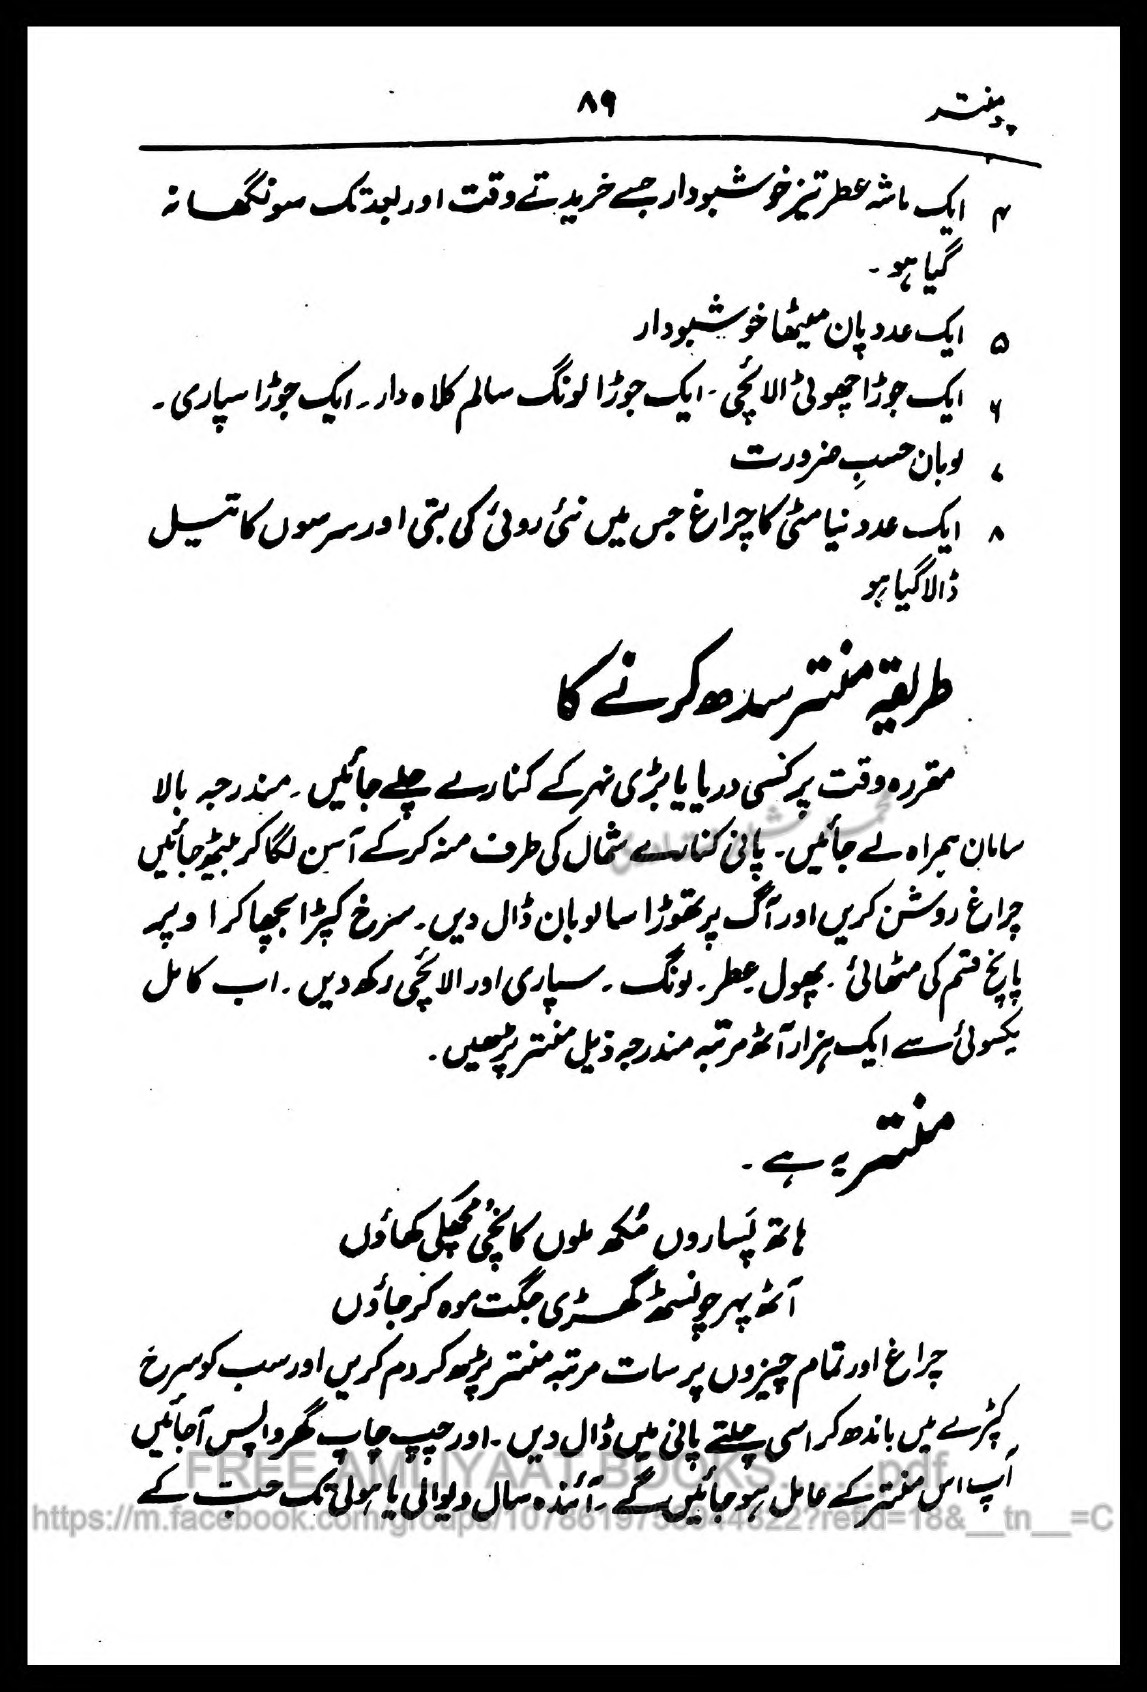 ۸۹
۴ ایک ماشہ عطر تیز خوشبودار جسے خریدتے وقت اور بعد تک سونگھا نہ
گیا ہو ۔
۵ ایک عدد پان میٹھا خوشبودار
۶ ایک جوڑا چھوٹی الائچی ۔ ایک جوڑا لونگ سالم کلاہ دار ۔ ایک جوڑا سپاری ۔
۷ لوبان حسبِ ضرورت
۸ ایک عدد نیا مٹی کا چراغ جس میں نئی روئی کی بتی اور سرسوں کا تیل
ڈالا گیا ہو
طریقہ منتر سدھ کرنے کا
مقررہ وقت پر کسی دریا یا بڑی نہر کے کنارے چلے جائیں ۔ مندرجہ بالا
سامان ہمراہ لے جائیں ۔ پانی کنارے شمال کی طرف منہ کر کے آسن لگا کر بیٹھ جائیں
چراغ روشن کریں اور آگ پر تھوڑا سا لوبان ڈال دیں ۔ سرخ کپڑا بچھا کر اوپر
پانچ قسم کی مٹھائی ۔ پھول ۔ عطر ۔ لونگ ۔ سپاری اور الائچی رکھ دیں ۔ اب کامل
یکسوئی سے ایک ہزار آٹھ مرتبہ مندرجہ ذیل منتر پڑھیں ۔
منتر یہ ہے ۔
ہاتھ پَساروں مُکھ ملوں کانچُی مچھلی کھاؤں
آٹھ پہر چونسٹھ گھڑی جگت موہ کر جاؤں
چراغ اور تمام چیزوں پر سات مرتبہ منتر پڑھ کر دم کریں اور سب کو سرخ
کپڑے میں باندھ کر اسی چلتے پانی میں ڈال دیں ۔ اور چپ چاپ گھر واپس آجائیں
آپ اس منتر کے عامل ہو جائیں گے ۔ آئندہ سال دیوالی یا ہولی تک حب کے
FREE AMLIYAAT BOOKS......pdf
https://m.facebook.com/groups/1078619758944322?refid=18&__tn__=C